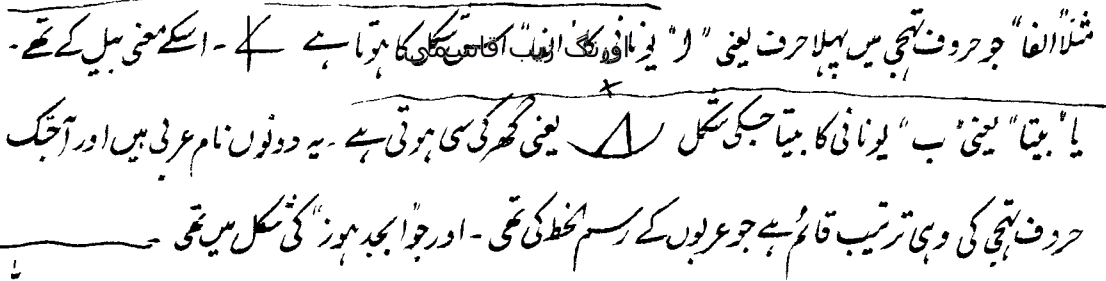 مثلاً "الفا" جو حروف تہجی میں پہلا حرف یعنی "ا" یونانی کا ہوتا ہے ۔ اسکے معنی بیل کے تھے ۔
یا "بیتا" یعنی "ب" یونانی کا بیتا جسکی شکل یعنی گھر کی سی ہوتی ہے ۔ یہ دونوں نام عربی ہیں اور آجتک
حروف تہجی کی وہی ترتیب قائم ہے جو عربوں کے رسم الخط کی تھی ۔ اور جو "ابجد ہوز" کی شکل میں تھی ۔